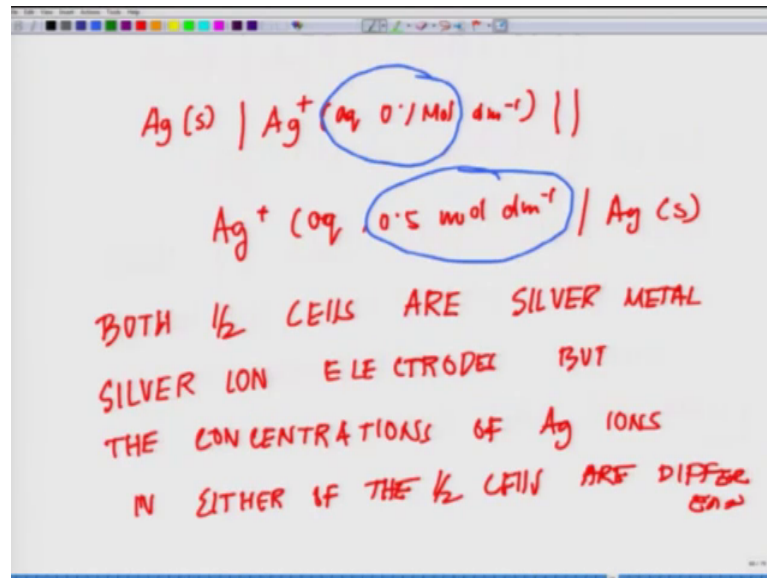 Ag (s) | Ag⁺ (aq 0.1 Mol dm⁻¹) ||
Ag⁺ (aq 0.5 mol dm⁻¹) | Ag (s)
BOTH 1/2 CELLS ARE SILVER METAL
SILVER ION ELECTRODES BUT
THE CONCENTRATIONS OF Ag IONS
IN EITHER OF THE 1/2 CELLS ARE DIFFER